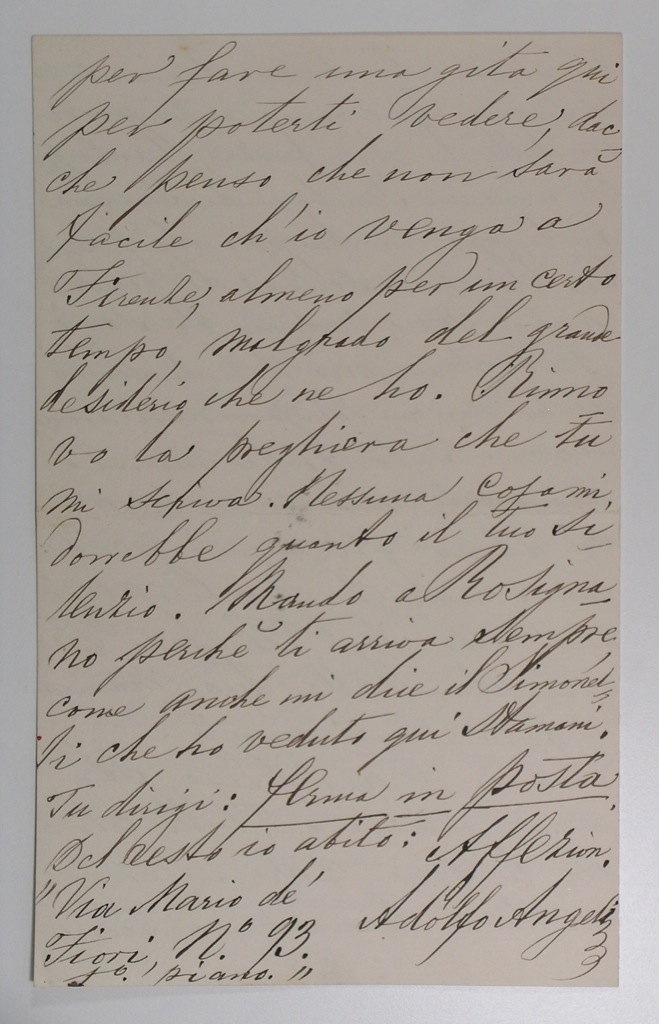 per fare una gita qui
per poterti vedere, dac
che penso che non sarà
facile ch'io venga a
Firenze, almeno per un certo
tempo, malgrado del grande
desiderio che ne ho. Rinno
vo la preghiera che tu
mi scriva. Nessuna cosa mi
dorrebbe quanto il tuo si-
lenzio. Mando a Rosigna-
no perchè ti arriva sempre
come anche mi dice il Simonel-
li che ho veduto qui stamani.
Tu dirigi: ferma in posta.
Del resto io abito: Affezion.
"Via Mario de'
Fiori, N.° 93. Adolfo Angeli
1°. piano."